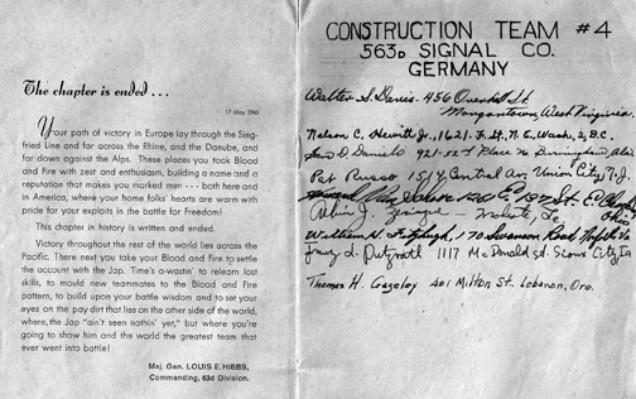 The chapter is ended . . .
17 May 1945
Your path of victory in Europe lay through the Sieg-
fried Line and far across the Rhine, and the Danube, and
far down against the Alps. These places you took Blood
and Fire with zest and enthusiasm, building a name and a
reputation that makes you marked men · · · both here and
in America, where your home folks' hearts are warm with
pride for your exploits in the battle for Freedom!
This chapter in history is written and ended.
Victory throughout the rest of the world lies across the
Pacific. There next you take your Blood and Fire to settle
the account with the Jap. Time's a-wastin' to relearn lost
skills, to mould new teammates to the Blood and Fire
pattern, to build upon your battle wisdom and to set your
eyes on the pay dirt that lies on the other side of the world,
where, the Jap "ain't seen nothin' yet," but where you're
going to show him and the world the greatest team that
ever went into battle!
Maj. Gen. LOUIS E. HIBBS,
Commanding, 63d Division.
CONSTRUCTION TEAM #4
563D SIGNAL CO.
GERMANY
Walter S. Davis - 456 Overhill St.
Morgantown, West Virginia.
Nelson C. Hewitt Jr., 1621 - F. St. N.E., Wash., 2, D.C.
D. Daniels 921-52nd Place N. Birmingham, Ala.
Pat Russo 1514 Central Av, Union City, N.J.
127 St. E.
Ohio
Alvin J. Zeringue -
William N. Fitzhugh, 170 Swanson Road, Norfolk Va
L. Putzrath 1117 McDonald St. Sioux City Ia
Thomas H. 401 Milton St. Lebanon, Ore.